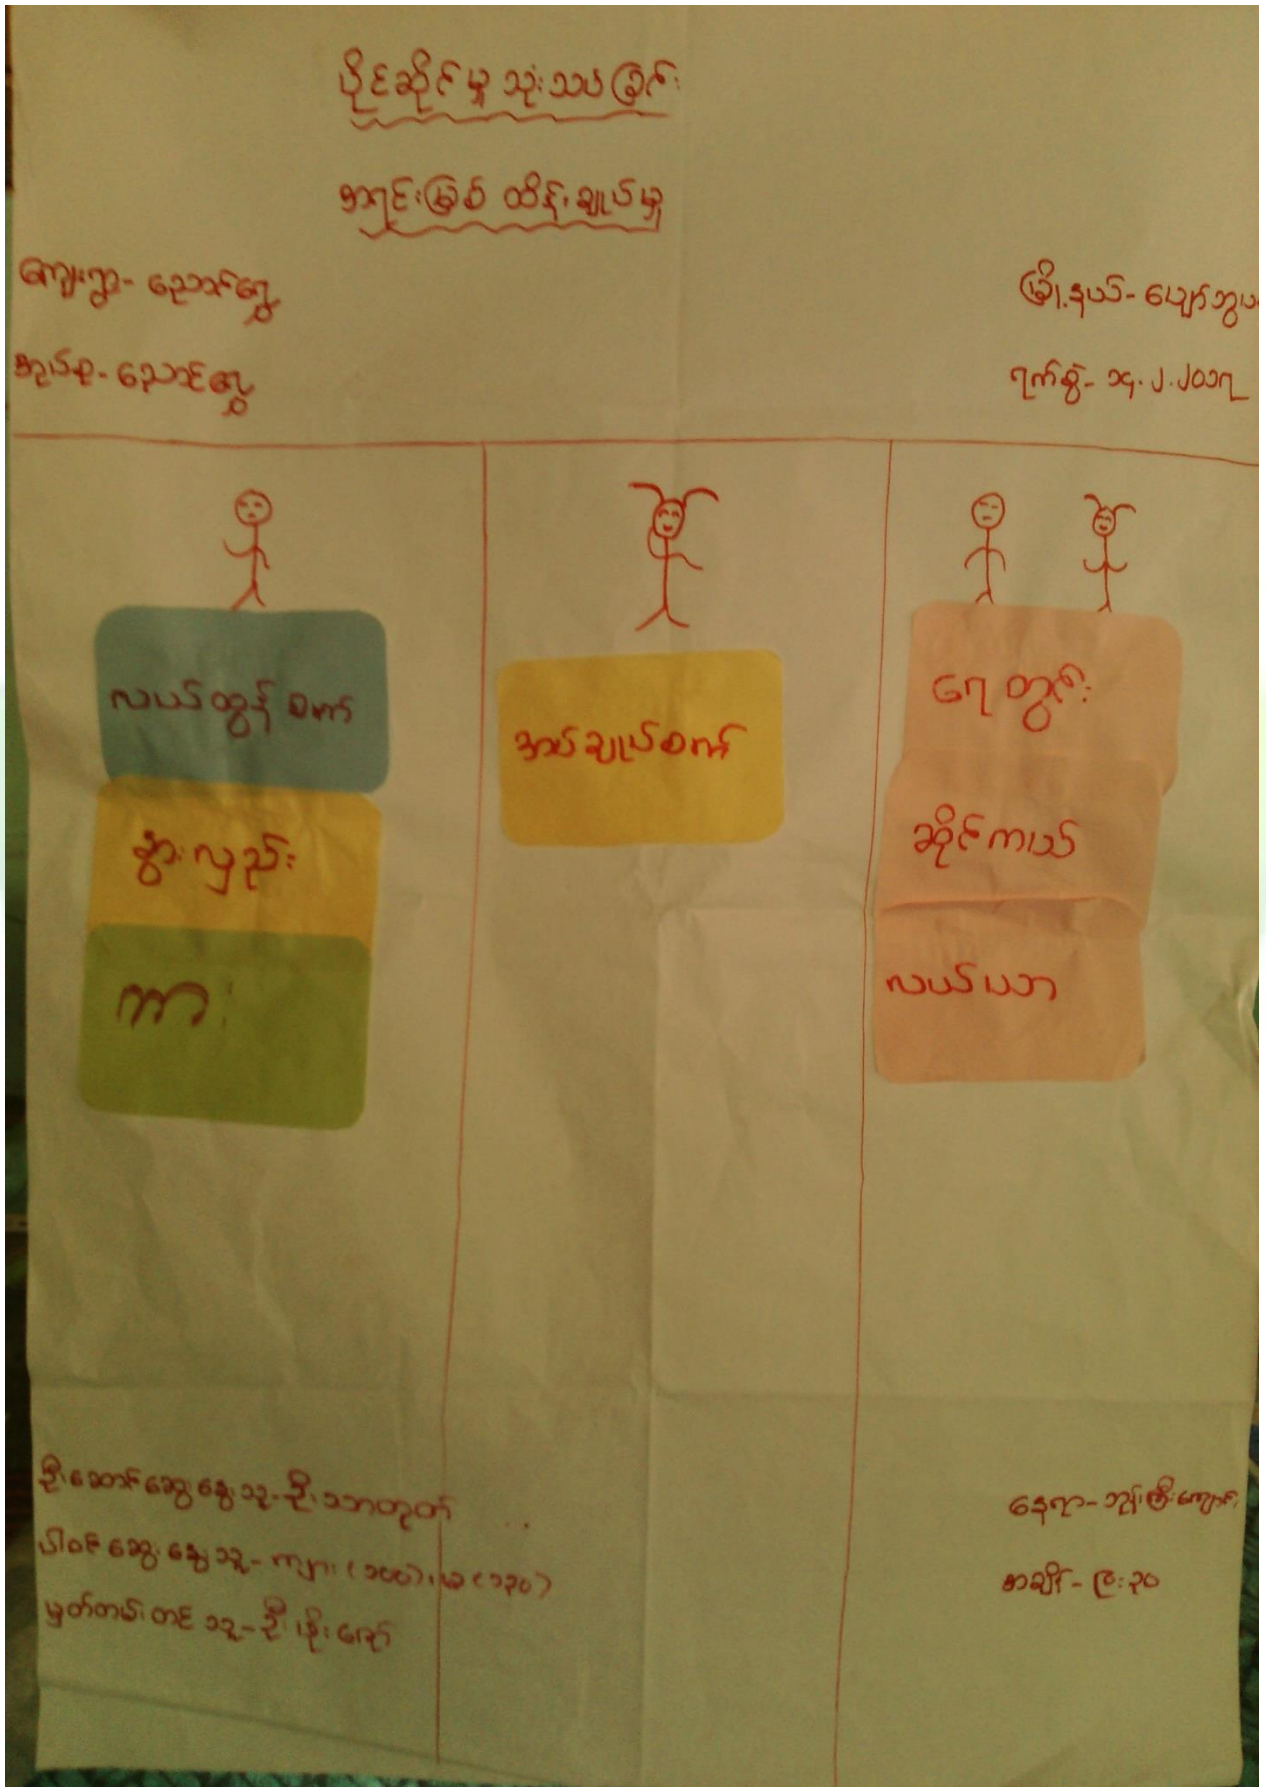 ပိုင်ဆိုင်မှု သုံးသပ်ခြင်း
အရင်းမြစ် ထိန်းချုပ်မှု
ကျေးရွာ- ညောင်ရွှေ
မြို့နယ်- ပျော်ဘွယ်
အုပ်စု- ညောင်ရွှေ
ရက်စွဲ- ၁၄.၂.၂၀၁၇
လယ်ထွန်စက်
နွားလှည်း
ကား
အပ်ချုပ်စက်
ရေတွင်း
ဆိုင်ကယ်
လယ်ယာ
ဦးဆောင်ဆွေးနွေးသူ- ဦးသာထွတ်
ပါဝင်ဆွေးနွေးသူ- ကျား (၁၀၀)၊ မ (၁၃၀)
မှတ်တမ်းတင်သူ- ဦးစိုးဇော်
နေရာ- ဘုန်းကြီးကျောင်း
အချိန်- ၉:၃၀